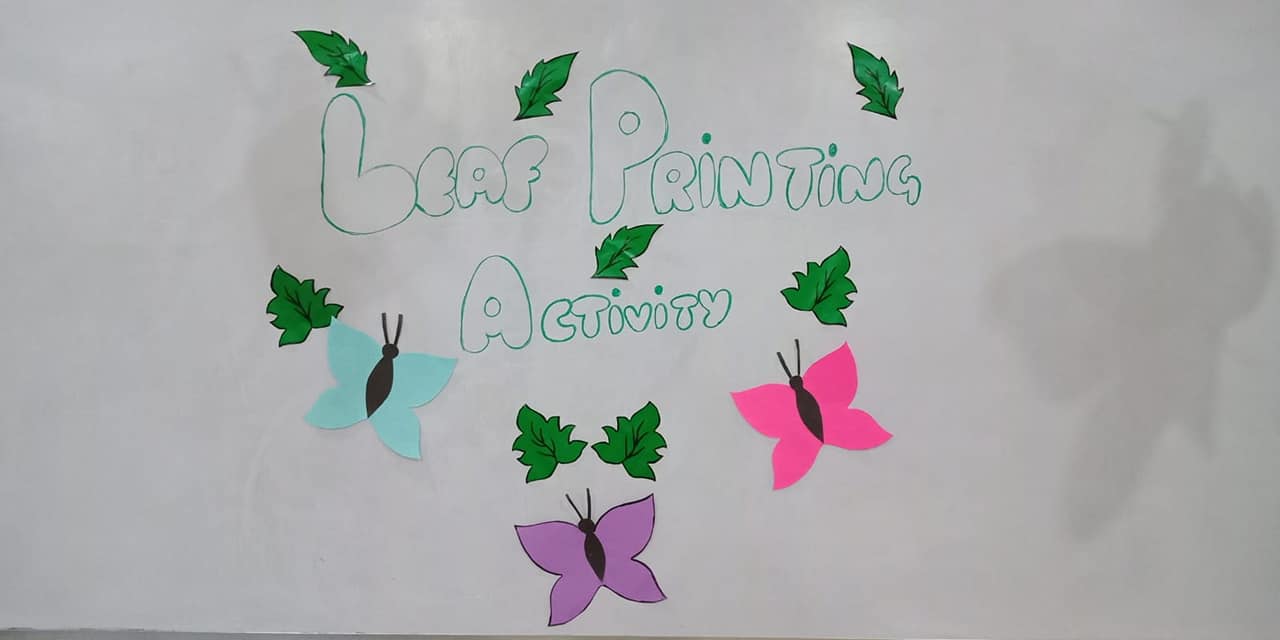 Leaf Printing
Activity